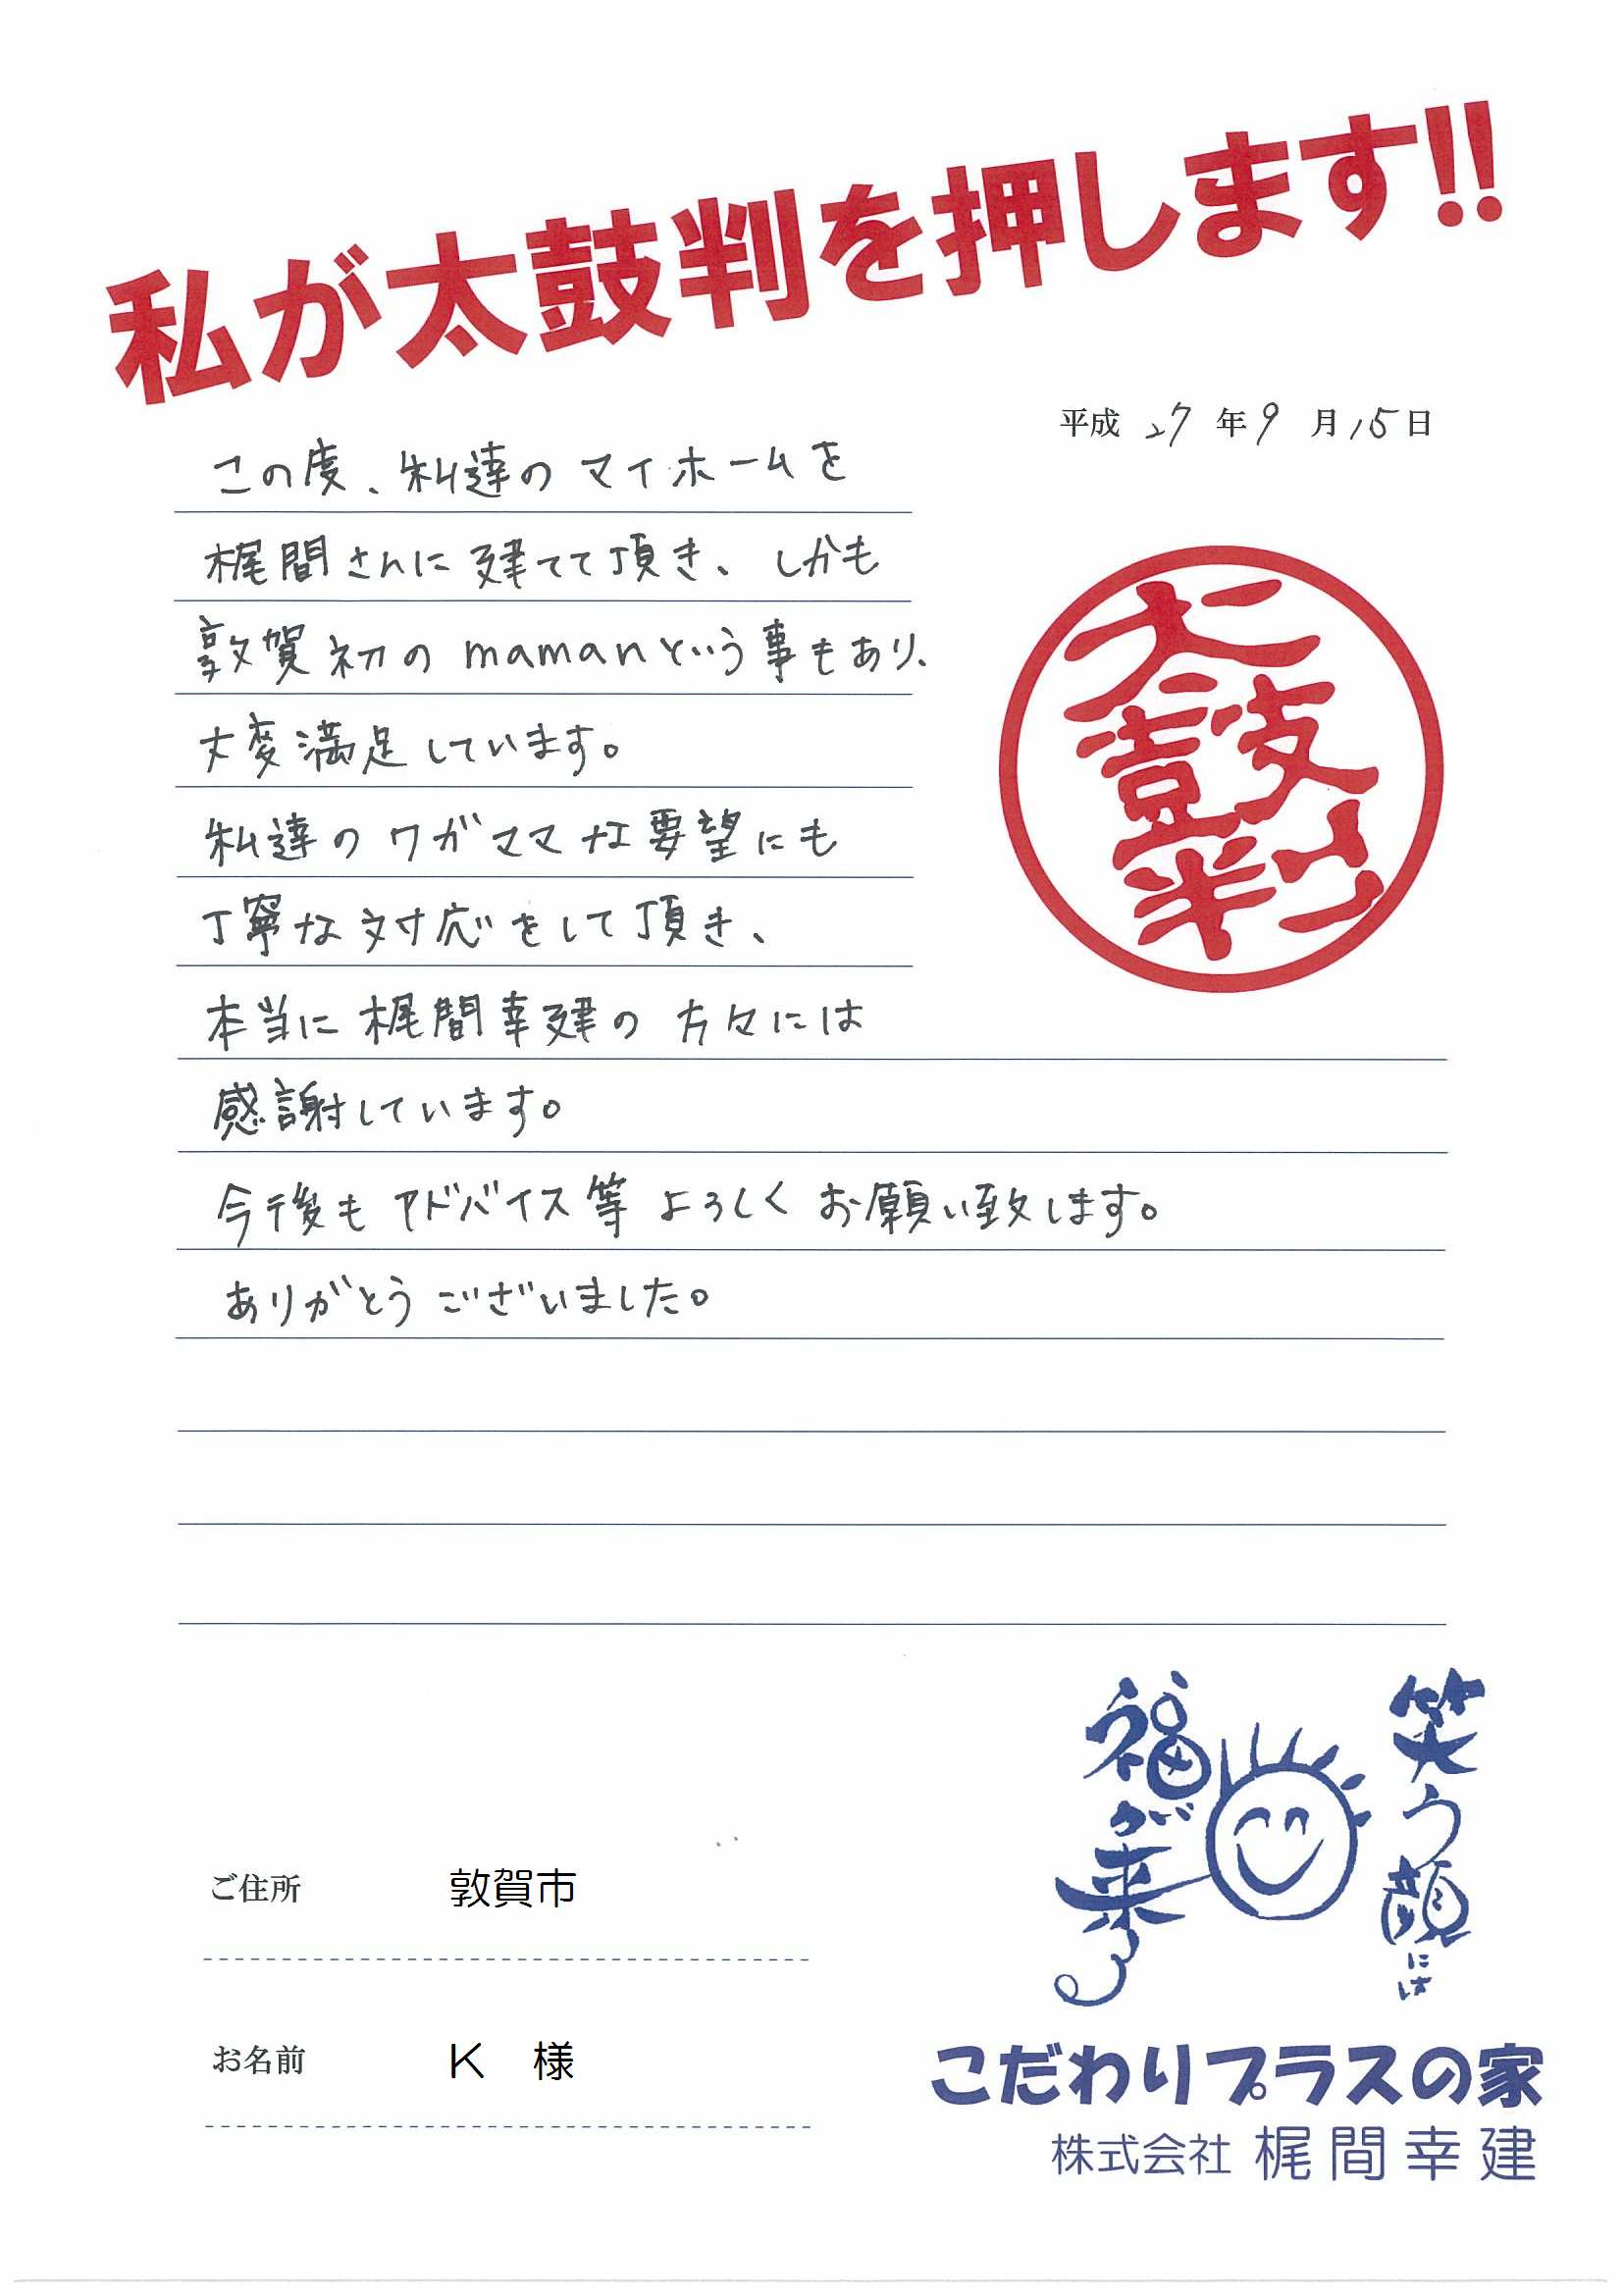 私が太鼓判を押します!!
平成 27 年 9 月 15 日
この度、私達のマイホームを
梶間さんに建てて頂き、しかも
敦賀初のmamanという事もあり、
大変満足しています。
私達のワガママな要望にも
丁寧な対応をして頂き、
本当に梶間幸建の方々には
感謝しています。
今後もアドバイス等よろしくお願い致します。
ありがとうございました。
太鼓判
笑う顔には
福が来る
ご住所 敦賀市
お名前 K 様
こだわりプラスの家
株式会社 梶間幸建